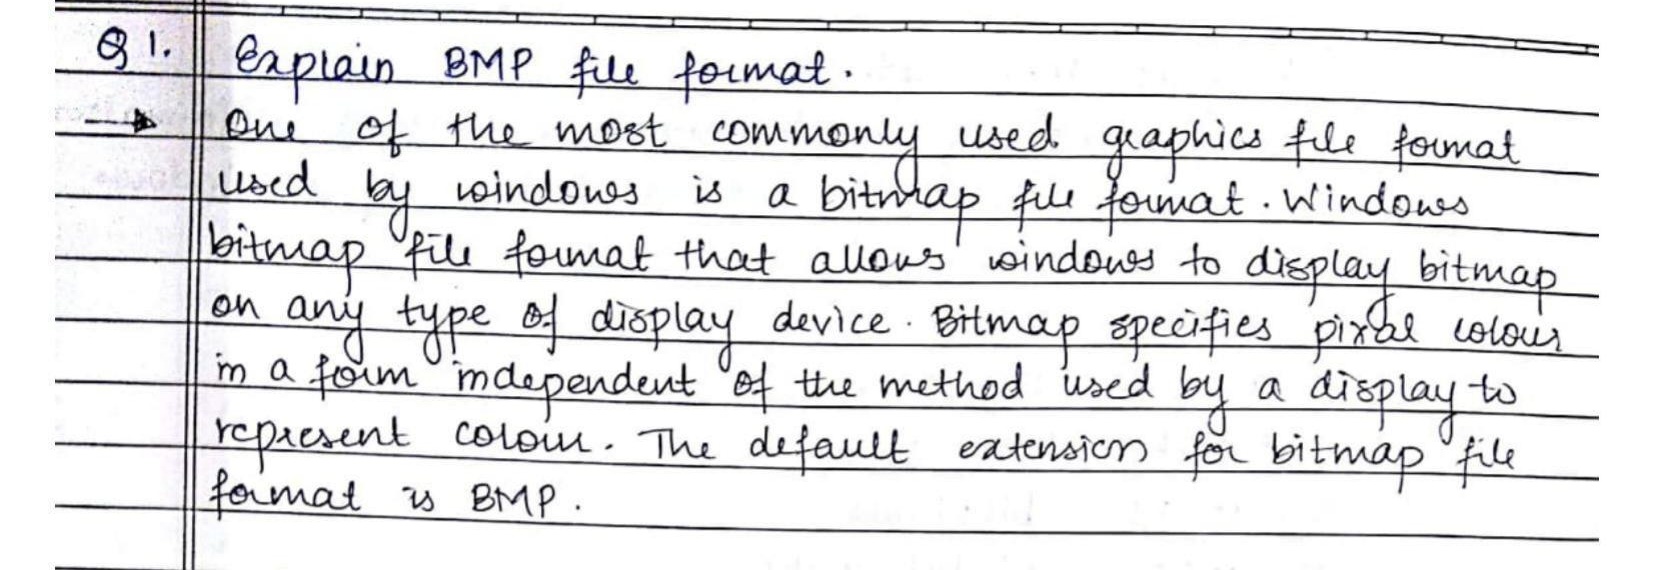 Q 1. Explain BMP file format.
→ One of the most commonly used graphics file format
used by windows is a bitmap file format. Windows
bitmap file format that allows windows to display bitmap
on any type of display device. Bitmap specifies pixal colour
in a form independent of the method used by a display to
represent colour. The default extension for bitmap file
format is BMP.